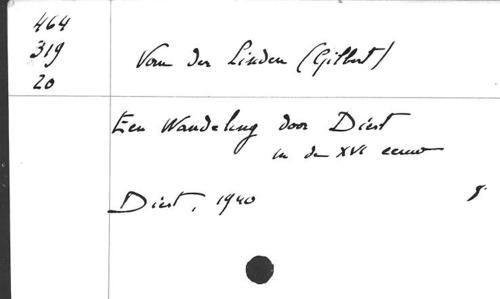 464
319
20
Van der Linden (Gilbert)
Een Wandeling door Diest
in de XVI eeuw
Diest, 1940
8°